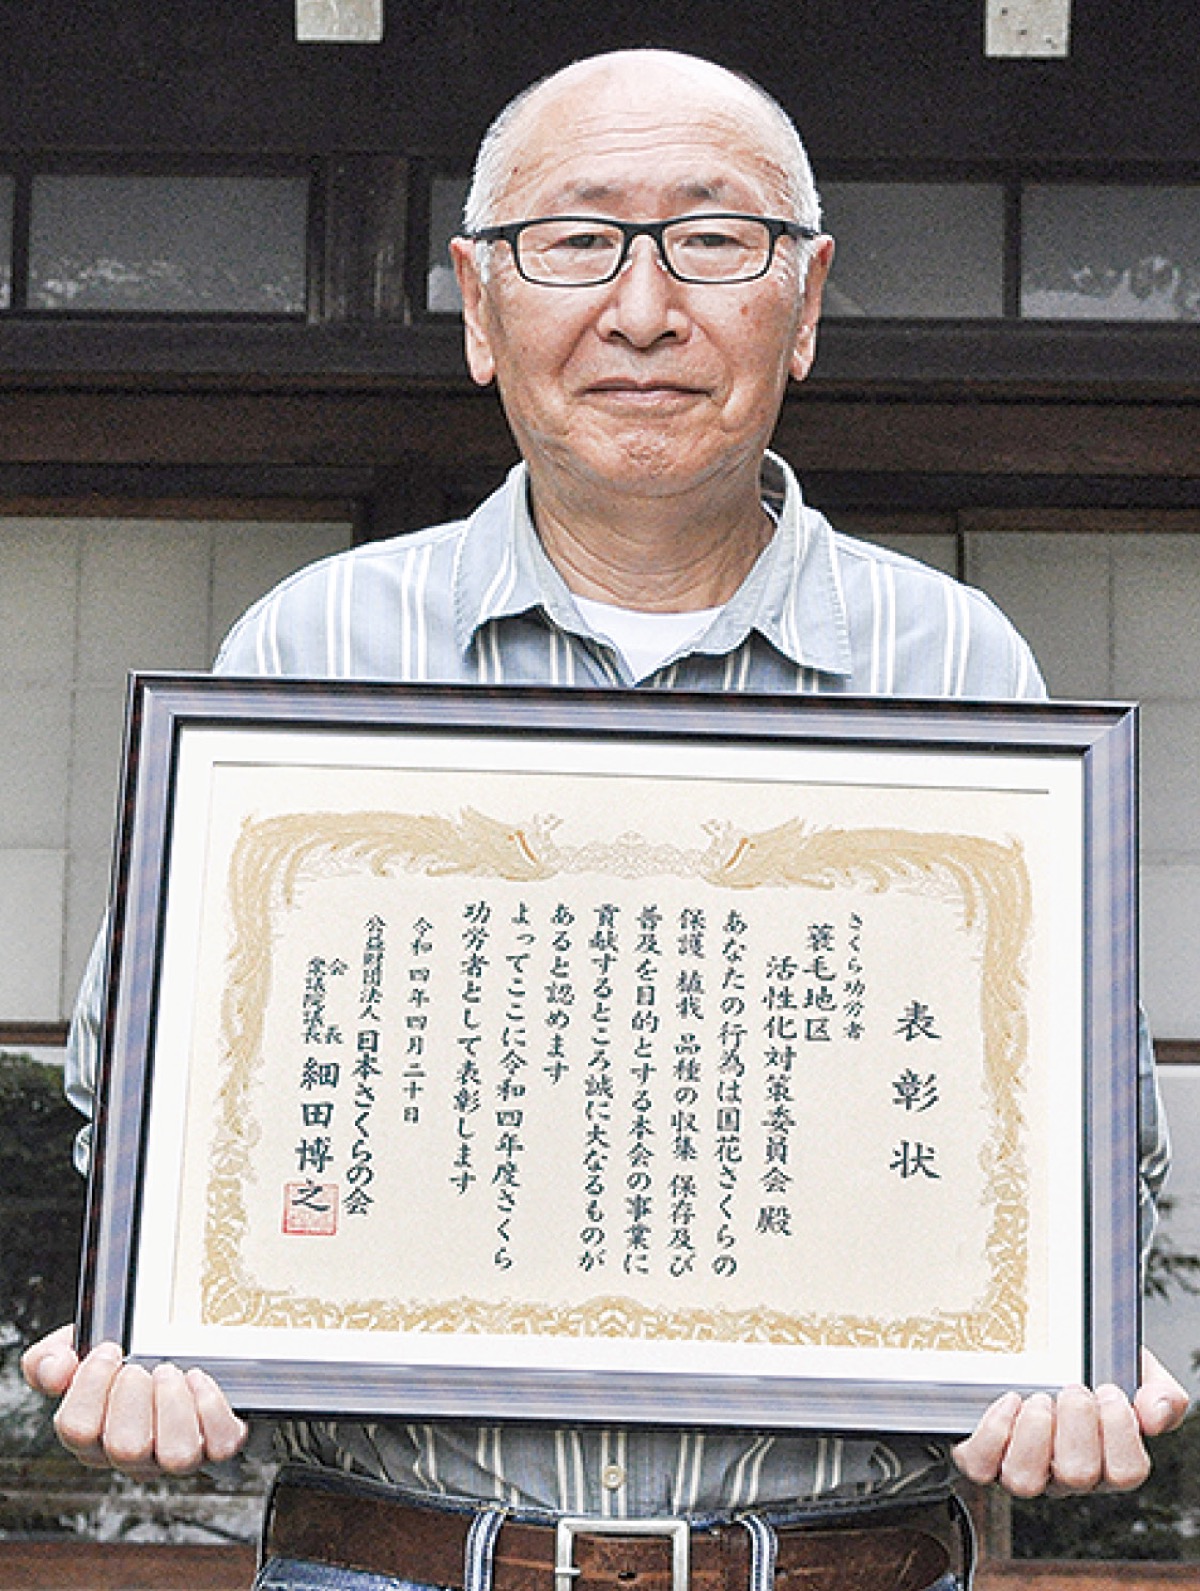 表彰状
さくら功労者
蓑毛地区
活性化対策委員会 殿
あなたの行為は国花さくらの
保護 植栽 品種の収集 保存及び
普及を目的とする本会の事業に
貢献するところ誠に大なるものが
あると認めます
よってここに令和四年度さくら
功労者として表彰します
令和四年四月二十日
公益財団法人 日本さくらの会
会長
衆議院議長 細田博之